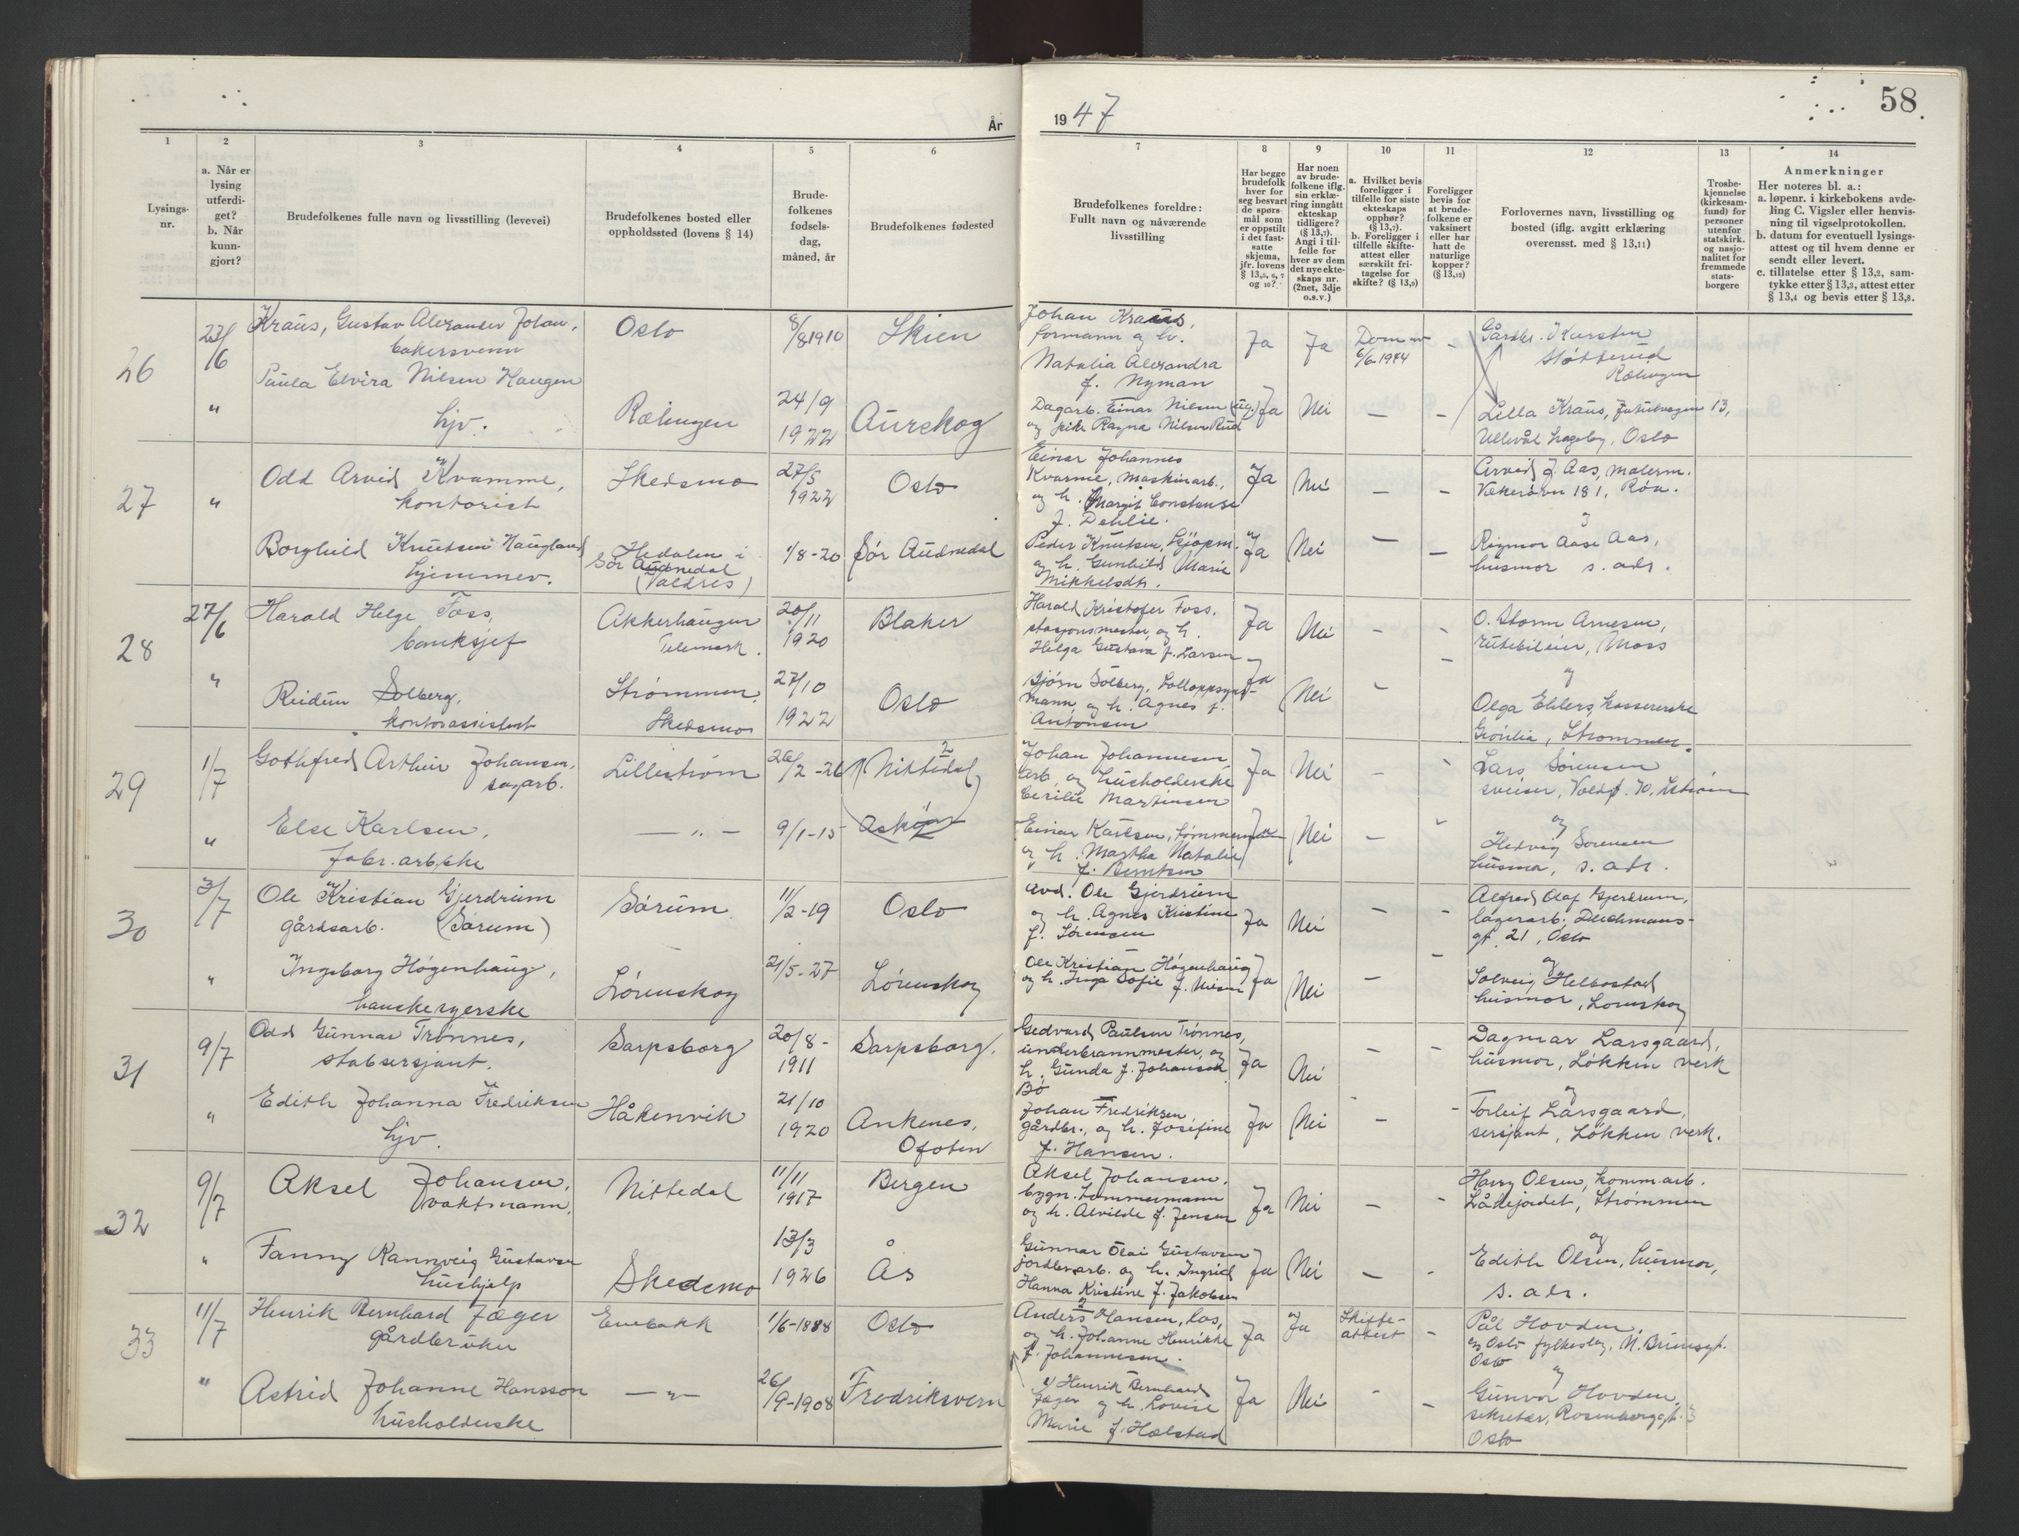 58
År
1947
1
2
3
4
5
6
7
8
9
10
11
12
13
14
Lysings-
nr.
a. Når er
lysing
utferdi-
get?
b. Når
kunn-
gjort?
Brudefolkenes fulle navn og livsstilling (levevei)
Brudefolkenes bosted eller
oppholdssted (lovens § 14)
Brude-
folkenes
fødsels-
dag,
måned, år
Brudefolkenes fødested
Brudefolkenes foreldre:
Fullt navn og nåværende
livsstilling
Har begge
brudefolk
hver for
seg besvart
de spørs-
mål som
er oppstilt
i det fast-
satte
skjema,
jfr. lovens
§ 13,5, 6, 7
og 10?
Har noen
av brude-
folkene iflg.
sin erklæ-
ring inngått
ekteskap
tidligere?
(§ 13,7).
Angi i til-
felle for
hver av dem
det nye ekte-
skaps nr.
(2net, 3dje
o.s.v.)
a. Hvilket bevis
foreligger i
tilfelle for siste
ekteskaps
opphør?
(§ 13,7).
b. Foreligger i
tilfelle skifte-
attest eller
særskilt fri-
tagelse for
skifte? (§ 13,9)
Foreligger
bevis for
at brude-
folkene er
vaksinert
eller har
hatt de
naturlige
kopper?
(§ 13,12)
Forlovernes navn, livsstilling og
bosted (iflg. avgitt erklæring
overensst. med § 13,11)
Trosbe-
kjennelse
(kirkesam-
fund) for
personer
utenfor
statskirk.
og nasjo-
nalitet for
fremmede
stats-
borgere
Anmerkninger
Her noteres bl. a.:
a. løpenr. i kirkebokens avde-
ling C. Vigsler eller henvis-
ning til vigselprotokollen.
b. datum for eventuell lysings-
attest og til hvem denne er
sendt eller levert.
c. tillatelse etter § 13,2, sam-
tykke etter § 13,3, attest etter
§ 13,4 og bevis etter § 13,8.
26
23/6
Kraus, Gustav Alexander Johan,
bakersvenn
Oslo
8/8 1910
Skien
Johan Kraus,
formann og h.
Natalia Alexandra
f. Nyman
Ja
Ja
Dom av
6/6-1944
-
Gårdbr. Karsten
Støtterud
Rælingen
"
Paula Elvira Nilsen Haugen
hjv.
Rælingen
24/9
1922
Aurskog
Dagarb. Einar Nilsen (ug.)
og pike Ragna Nilsen Rud
Ja
Nei
-
-
Lilla Kraus, Jutulvegen 13,
Ullevål hageby, Oslo
27
"
Odd Arvid Kvamme,
kontorist
Skedsmo
27/5
1922
Oslo
Einar Johannes
Kvamme, maskinarb.,
og h. Margit Constanse
f. Dehlie.
Ja
Nei
-
-
Arvid J. Aas, malerm.
Vækerøvn 181, Røa.
og
Borghild Knutsen Haugland
hjemmev.
Hedalen i
Sør Audnedal
(Valdres)
1/8-20
Sør Audnedal
Peder Knutsen, skjopm.
og h. Gunhild Marie
Mikkelsdt.
Ja
Nei
-
-
Rigmor Aase Aas,
husmor s. adr.
28
27/6
Harald Helge Foss,
banksjef
Akkerhaugen
Telemark.
20/11
1920
Blaker
Harald Kristofer Foss.
stasjonsmester, og h.
Helga Gustava f. Larsen
Ja
Nei
-
-
O. Storm Arnesen,
rutebileier, Moss
og
"
Reidun Solberg,
kontorassistent
Strømmen,
Skedsmo
27/10
1922
Oslo
Bjørn Solberg, Tolloppsyns-
mann, og h. Agnes f.
Antonsen
Ja
Nei
-
-
Olga Ehlers, kassererske
Grorlia, Strømmen.
29
1/7
Gothfred Arthur Johansen,
sagarb.
Lillestrøm
26/2-26
Nittedal
Johan Johannesen,
arb. og husholderske
Cecilie Martinsen
Ja
Nei
-
-
Lars Sørensen
sveiser, Voldg. 10, L.strøm
og
"
Else Karlsen,
fabr.arb.ske
- " -
9/1-15
Askøy
Einar Karlsen, tømmermann
og h. Martha Natalie
f. Berntsen
Ja
Nei
-
-
Hedvig Sørensen
husmor, s. adr.
30
3/7
Ole Kristian Gjerdrum
gårdsarb. (Sørum)
Sørum
11/2-19
Oslo
Avd. Ole Gjerdrum
og h. Agnes Kristine
f. Sørensen
Ja
Nei
-
-
Alfred Olaf Gjerdrum,
lagerarb. Deichmans-
gt. 21, Oslo
og
"
Ingeborg Høgenhaug,
hanskesyerske
Lørenskog
21/5-27
Lørenskog
Ole Kristian Høgenhaug
og h. Inga Sofie f. Nilsen
Ja
Nei
-
-
Solveig Helbostad
husmor, Lørenskog
31
9/7
Odd Gunnar Trønnes,
stabsersjant.
Sarpsborg
20/8-
1911
Sarpsborg.
Gedvard Paulsen Trønnes,
underbrannmester, og
h. Gunda f. Johansen
Bø
Ja
Nei
-
-
Dagmar Larsgaard,
husmor, Løkken verk
og
"
Edith Johanna Fredriksen
hjv.
Håkenvik
21/10
1920
Ankenes,
Ofoten
Johan Fredriksen,
gårdbr., og h. Josefine
f. Hansen.
Ja
Nei
-
-
Torleif Larsgaard,
sersjant, Løkken verk.
32
9/7
Aksel Johansen,
vaktmann.
Nittedal
11/11
1917
Bergen
Aksel Johansen,
bygn. tømmermann
og h. Alvilde f. Jensen
Ja
Nei
-
-
Harry Olsen, komm.arb.
Lådejordet, Strømmen
og
"
Fanny Rannveig Gustavsen
hushjelp
Skedsmo
13/3
1926
Ås
Gunnar Olai Gustavsen
jordbr.arb. og h. Ingrid
Hanna Kristine f. Jakobsen
Ja
Nei
-
-
Edith Olsen, husmor,
s. adr.
33
11/7
Henrik Bernhard Jæger
gårdbruker
Enebakk
1/6-1888
Oslo
Anders Hansen, los,
og h. Johanne Henrikke
f. Johannesen.
Ja
Ja
Skifte-
attest
-
Pål Hovden,
Oslo fylkeslag, N. Brunsgt.
Oslo
og
"
Astrid Johanne Hansson
husholderske
- " -
26/9-1908
Fredriksvern
Henrik Bernhard
Jæger og h. Lovise
Marie f. Hælstad
Ja
Nei
-
-
Gunvor Hovden,
sekretær, Rosenborggt. 3
Oslo